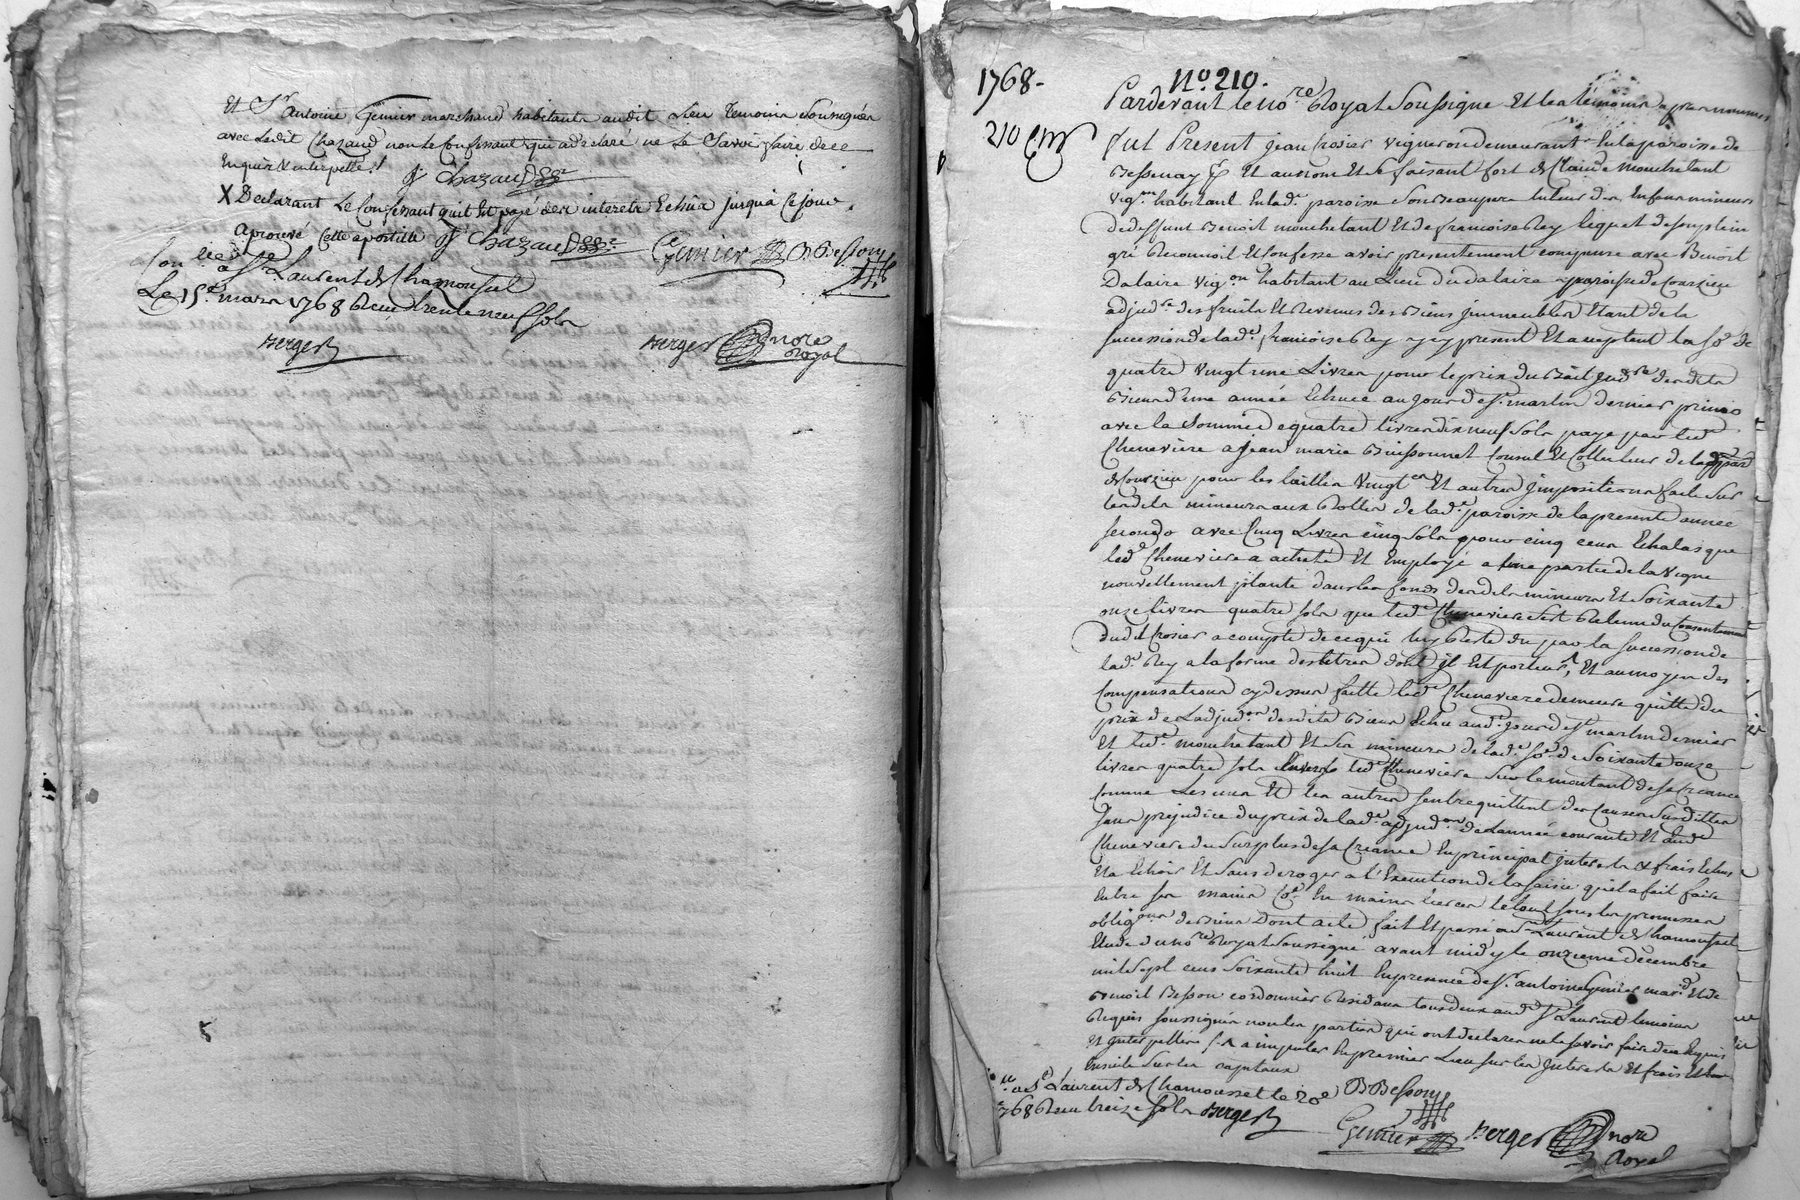 Et Sr Antoine Genier marchand habitants audit Lieu temoins Soussignés
avec Ledit Chazaud non le Confessant qui a declaré ne Le Savoir faire de ce
Enquis & interpellé
Chazaud
X Declarant Le Confessant quil Est payé des interets Echus jusqua Ce jour
aprouvé Cette apostille Chazaud Genier B Besson
Con lle a St Laurent de Chamousset
Le 15e mars 1768 Reçu trente neuf sols
Berger Berger nore
Royal
1768. No. 210.
Pardevant le nore Royal Soussigné Et les témoins apres nommés
210
fut Present jean Crosier vigneron demeurant En la paroisse de
Bessenay Et au nom Et se faisant fort de Claude mouchetant
vigon habitant En lade paroisse Son Beaupere tuteur des Enfans mineurs
de deffunt Benoit mouchetant Et de francoise Rey lequel de son plein
gré Reconnoit Et Confesse avoir presentement compensé avec Benoit
Dalaire vigon habitant au Lieu du dalaire paroisse de Courzieu
adjudre des fruits Et Revenus des Biens jmmeubles Etant de la
succession de lade francoise Rey y present Et acceptant la soe de
quatre vingt une Livres pour le prix du Bail judre desdits
Biens d'une année Echue au jour de St martin dernier primo
avec la Somme de quatre livres dix neuf Sols payé par led
Cheneviere a jean marie Buissonnet Consul Et Collecteur de lad par
de Courzieu pour les tailles vingte Et autres jmpositions faite sur
lesdits mineurs aux Rolles de lade paroisse de la presente année
secondo avec Cinq Livres cinq Sols pour cinq cens Echalas que
led Cheneviere a acheté Et Employé a une partie de la vigne
nouvellement plantée dans les fonds desdits mineurs Et soixante
onze livres quatre sols que led Cheneviere s'est Retenu du Consentement
dudit Crosier a compte de ce qui luy Reste du par la succession de
lade Rey a la forme des titres dont jl Est porteur, Et au moyen des
Compensations cy dessus faitte led Cheneviere demeure quitte du
prix de Ladjudon desdits Biens Echu aud jour de St martin dernier
Et led mouchetant Et Ses mineurs de lade soe de Soixante onze
livres quatre sols Envers led Cheneviere Sur le montant de sa Creance
Comme Les uns Et les autres sentrequittent des Causes Susdittes
Sans prejudice du prix de lade adjudon de Lannée courante Et aud
Cheneviere du Surplus de sa Creance En principal jnterets & frais Echus
Et a Echoir Et Sans deroger a l'Execution de la saisie qu'il a fait faire
Entre ses mains Co En mains tierces le tout sous les promesses
obligons de Biens Dont acte fait Et passé aud St Laurent de Chamousset
Etude du nore Royal Soussigné avant midy le onzieme decembre
mil Sept cens Soixante huit En presence de Sr antoine Genier mard Et de
Benoit Besson cordonnier Residans tous deux aud St Laurent temoins
Requis soussignés non les parties qui ont declarés ne le savoir faire de ce Enquis
Et jnterpellés a imputer En premier Lieu sur les jnterets Et frais
Ensuite Sur les capitaux
a St Laurent de Chamousset le 20e B Besson
1768 Reçu treize sols Berger
Genier Berger nore
Royal